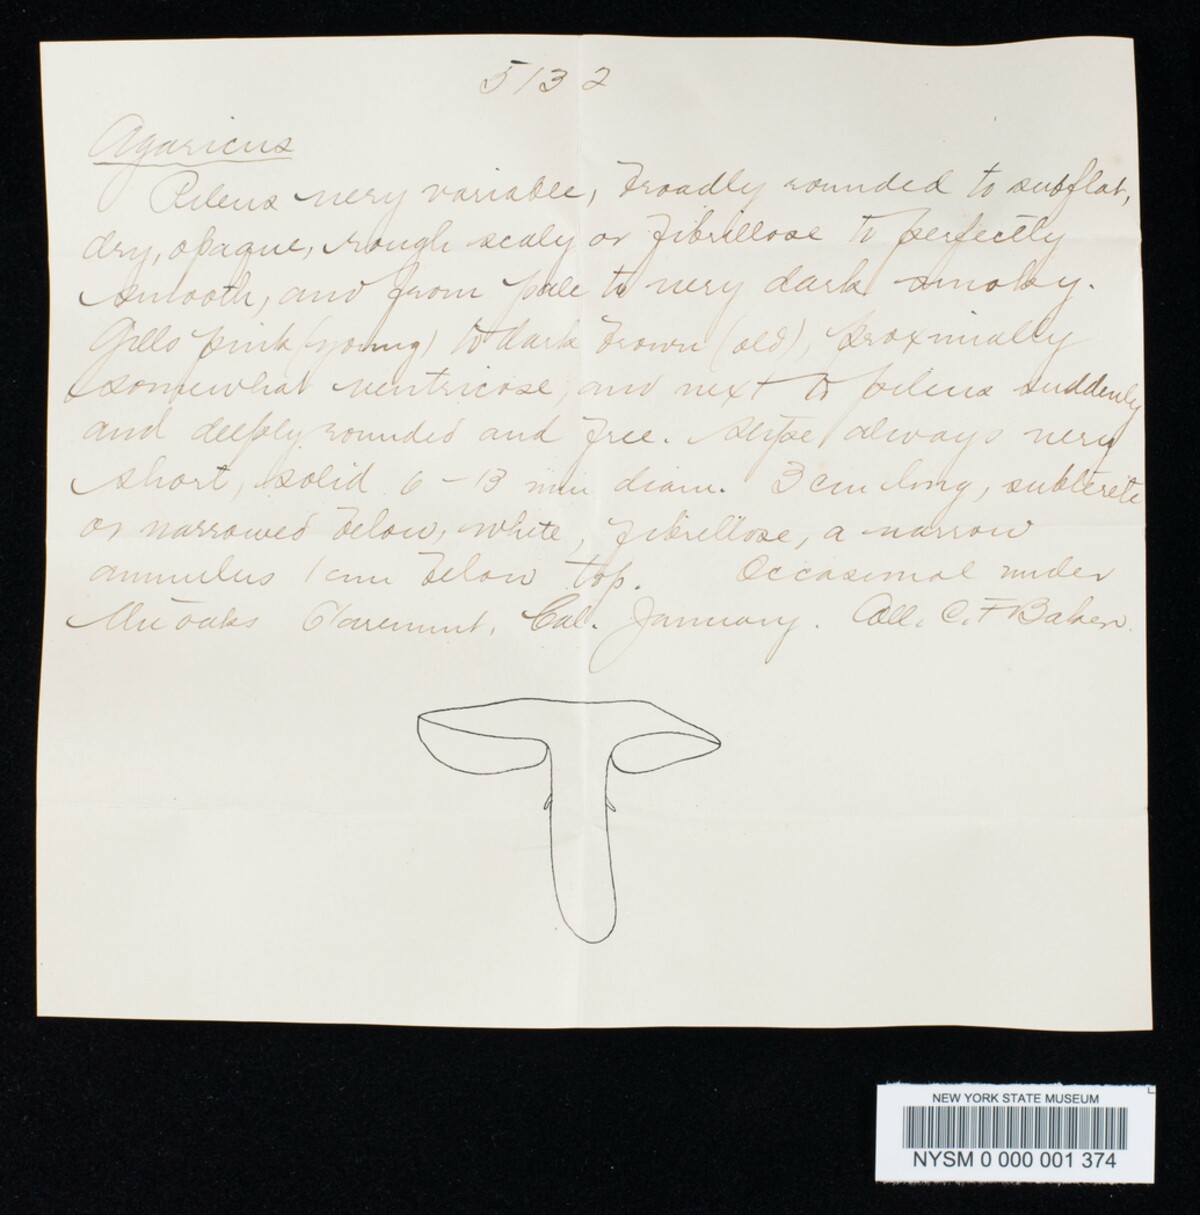 5132
Agaricus
Pileus very variable, broadly rounded to subflat,
dry, opaque, rough scaly or fibrillose to perfectly
smooth, and from pale to very dark smoky.
Gills pink (young) to dark brown (old), proximally
somewhat ventricose, and next to pileus suddenly
and deeply rounded and free. Stipe always very
short, solid 6-13 mm diam. 3 cm long, subterete
or narrowed below, white, fibrillose, a narrow
annulus 1 cm below top. Occasional under
live oaks Claremont, Cal. January. Coll. C. F. Baker.
NEW YORK STATE MUSEUM
NYSM 0 000 001 374